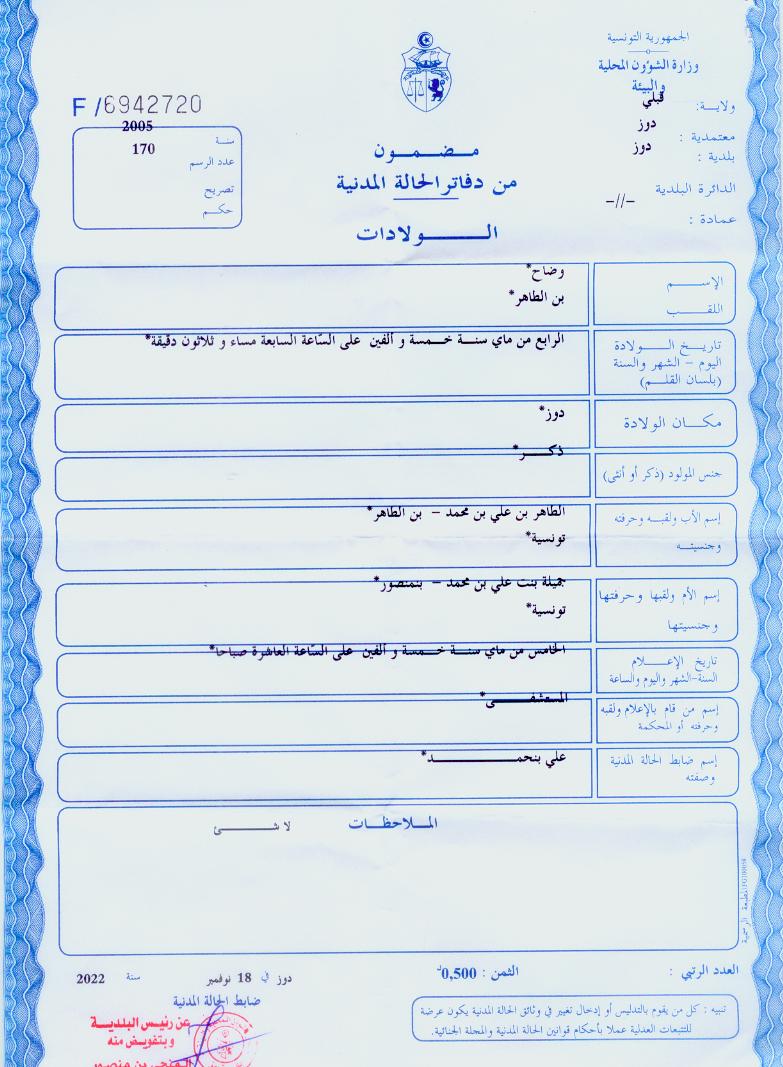 الجمهورية التونسية
وزارة الشؤون المحلية
والبيئة
ولايـــة: قبلي
معتمدية : دوز
بلدية : دوز
الدائرة البلدية –//–
عمادة :
F /6942720
سنـة 2005
عدد الرسم 170
تصريح
حكـم
مـضـمـــون
من دفاتر الحالة المدنية
الـــــولادات
الإســـم وضاح*
اللقـــب بن الطاهر*
تاريـــخ الـــــولادة الرابع من ماي سنـــة خـمـسة و ألفين على السّاعة السابعة مساء و ثلاثون دقيقة*
اليوم – الشهر والسنة
(بلسان القلـــم)
مكـــان الولادة دوز*
جنس المولود (ذكر أو أنثى) ذكـــر*
إسم الأب ولقبـــه وحرفته الطاهر بن علي بن محمد – بن الطاهر*
وجنسيتـــه تونسية*
إسم الأم ولقبها وحرفتها جميلة بنت علي بن محمد – بنمنصور*
وجنسيتها تونسية*
تاريخ الإعـــــلام الخامس من ماي سنـــة خـمـسة و ألفين على السّاعة العاشرة صباحا*
السنة-الشهر واليوم والساعة
إسم من قام بالإعلام ولقبه المستشفـــى*
وحرفته أو المحكمة
إسم ضابط الحالة المدنية علي بنحمـــــــد*
وصفته
الملاحظـــات
لا شـــئ
المطبعة الرسمية
العدد الرتبي :
الثمن : 0,500د
دوز في 18 نوفمبر سنة 2022
ضابط الحالة المدنية
تنبيه : كل من يقوم بالتدليس أو إدخال تغيير في وثائق الحالة المدنية يكون عرضة
للتتبعات العدلية عملا بأحكام قوانين الحالة المدنية والمجلة الجنائية.
عن رئيس البلدية
وبتفويض منه
المنجي بن منصور